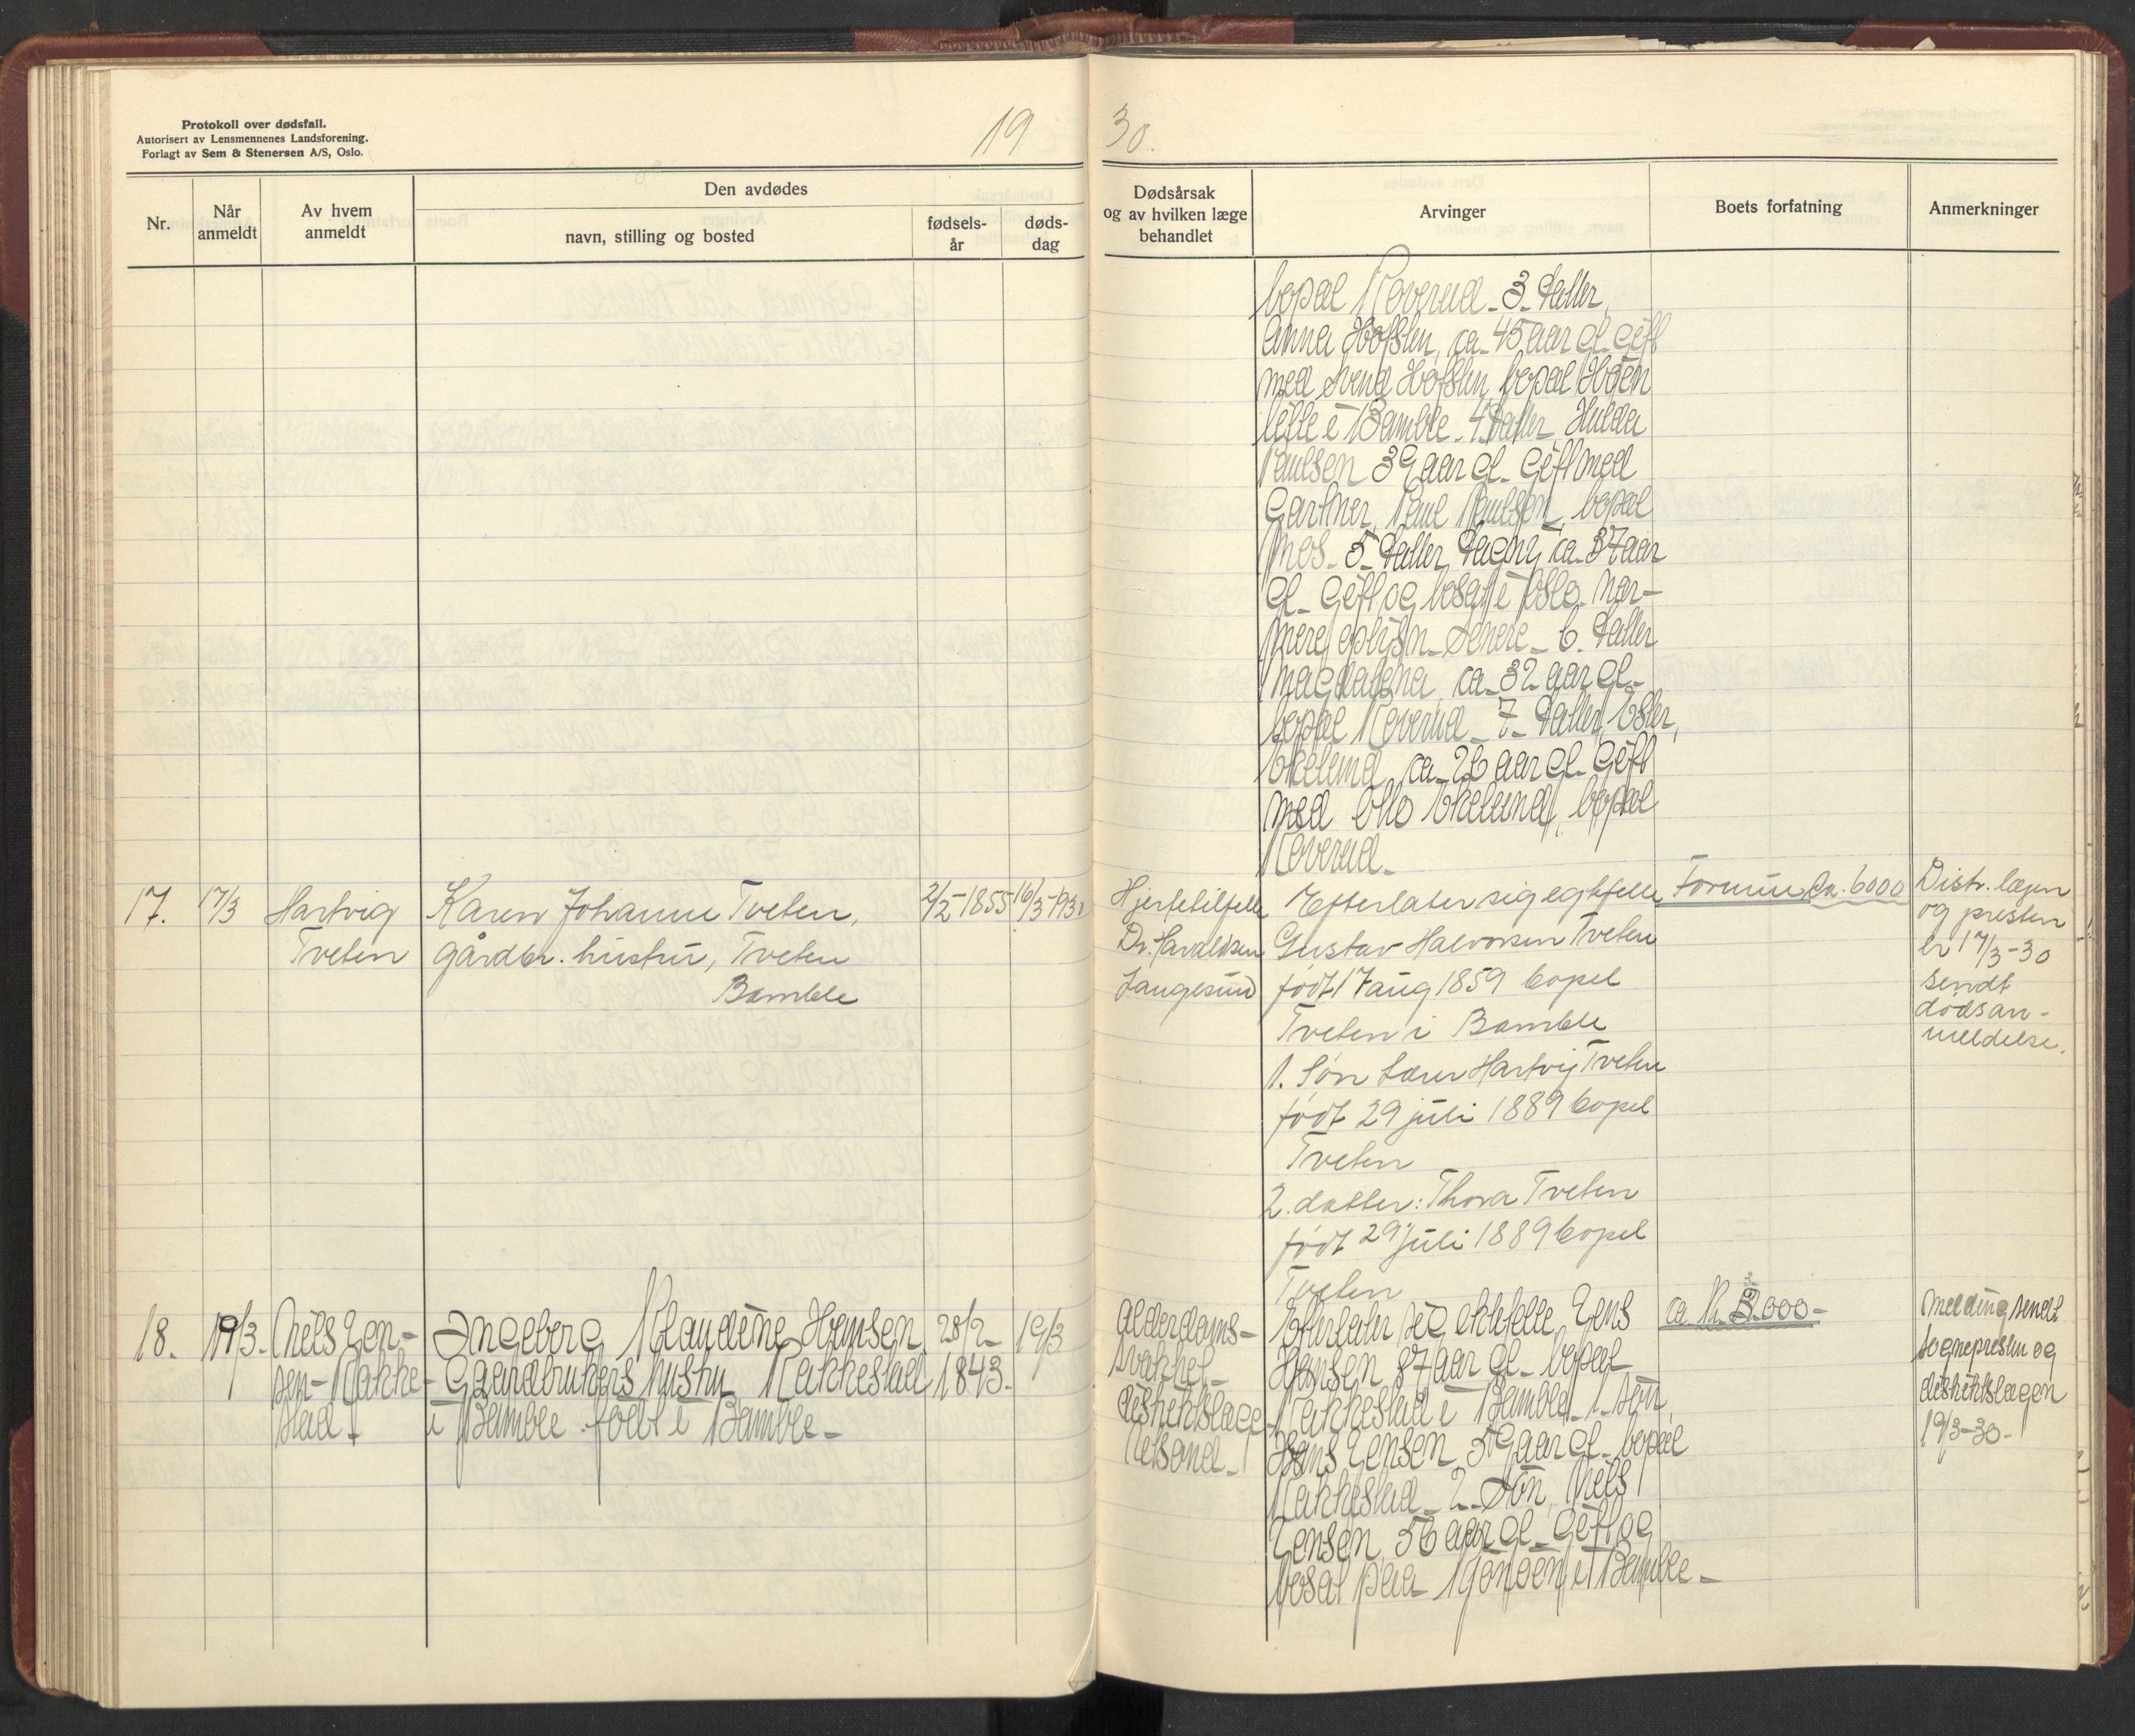 Protokoll over dødsfall.
Autorisert av Lensmennenes Landsforening.
Forlagt av Sem & Stenersen A/S, Oslo.
19
30.
Nr.
Når
anmeldt
Av hvem
anmeldt
Den avdødes
navn, stilling og bosted
fødsels-
år
døds-
dag
Dødsårsak
og av hvilken læge
behandlet
Arvinger
Boets forfatning
Anmerkninger
bopæl Roverud - 3 - datter
Anna Hofslen, ca - 45 aar gl. Gift
med Svend Hofslen, bopæl
lille i Bamble - 4 datter Hulda
Paulsen 39 aar gl. Gift med
Gartner, Paul Paulsen, bopæl
Mos. 5 datter Dagny ca. 37 aar
gl. Gift og bosat i Oslo. Nær-
mere oplysn. senere - 6. datter
Magdalena, ca. 32 aar gl.
bopæl Roverud - 7 - datter, Ester,
Ekelund, ca. 26 aar gl. Gift
med Otto Ekelund, bopæl
Roverud.
17.
17/3
Hartvig
Tveten
Karen Johanne Tveten,
gårdbr. hustru, Tveten
Bamble
2/2-1855
16/3-1930
Hjertetilfelle
Dr. Haraldsen
Langesund
Efterlater sig egtefelle
Gustav Halvorsen Tveten
født 17 aug 1859 bopel
Tveten i Bamble
1. Søn Lærer Hartvig Tveten
født 29 juli 1889 bopel
Tveten
2. datter: Thora Tveten
født 29 juli 1889 bopel
Tveten
Formue ca. 6000
Distr. lægen
og presten
er 17/3-30
sendt
dødsan-
meldelse.
18.
19/3.
Niels Jen-
sen - Rakke-
stad -
Ingeborg Klaudine Hansen
Gaardbrukers hustru Rakkestad
i Bamble - født i Bamble -
28/2
1843.
19/3
Alderdoms-
svakhet -
distriktslæge
Efterlater sig ektefelle, Jens
Hansen 87 aar gl. bopæl
Rakkestad i Bamble 1. søn,
Hans Jensen 59 aar gl. bopæl
Rakkestad - 2. Søn, Niels
Jensen, 56 aar gl. Gift og
bosat paa i Bamble -
ca Kr 000 -
Melding sendt
sognepresten og
distriktslægen
19/3-30 -